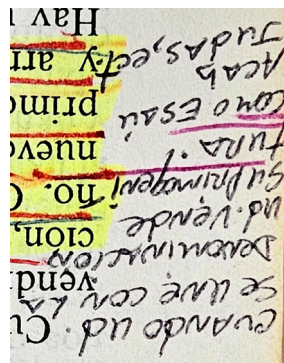 CUANDO UD.
SE UNE CON LA
DENOMINACION
UD. VENDE
SU PRIMOGENI
TURA!
COMO ESAÚ
ACAB
JUDAS, ect.
Cu
vendi
ción,
ño. C
nuevo
primo
y arr
Hay